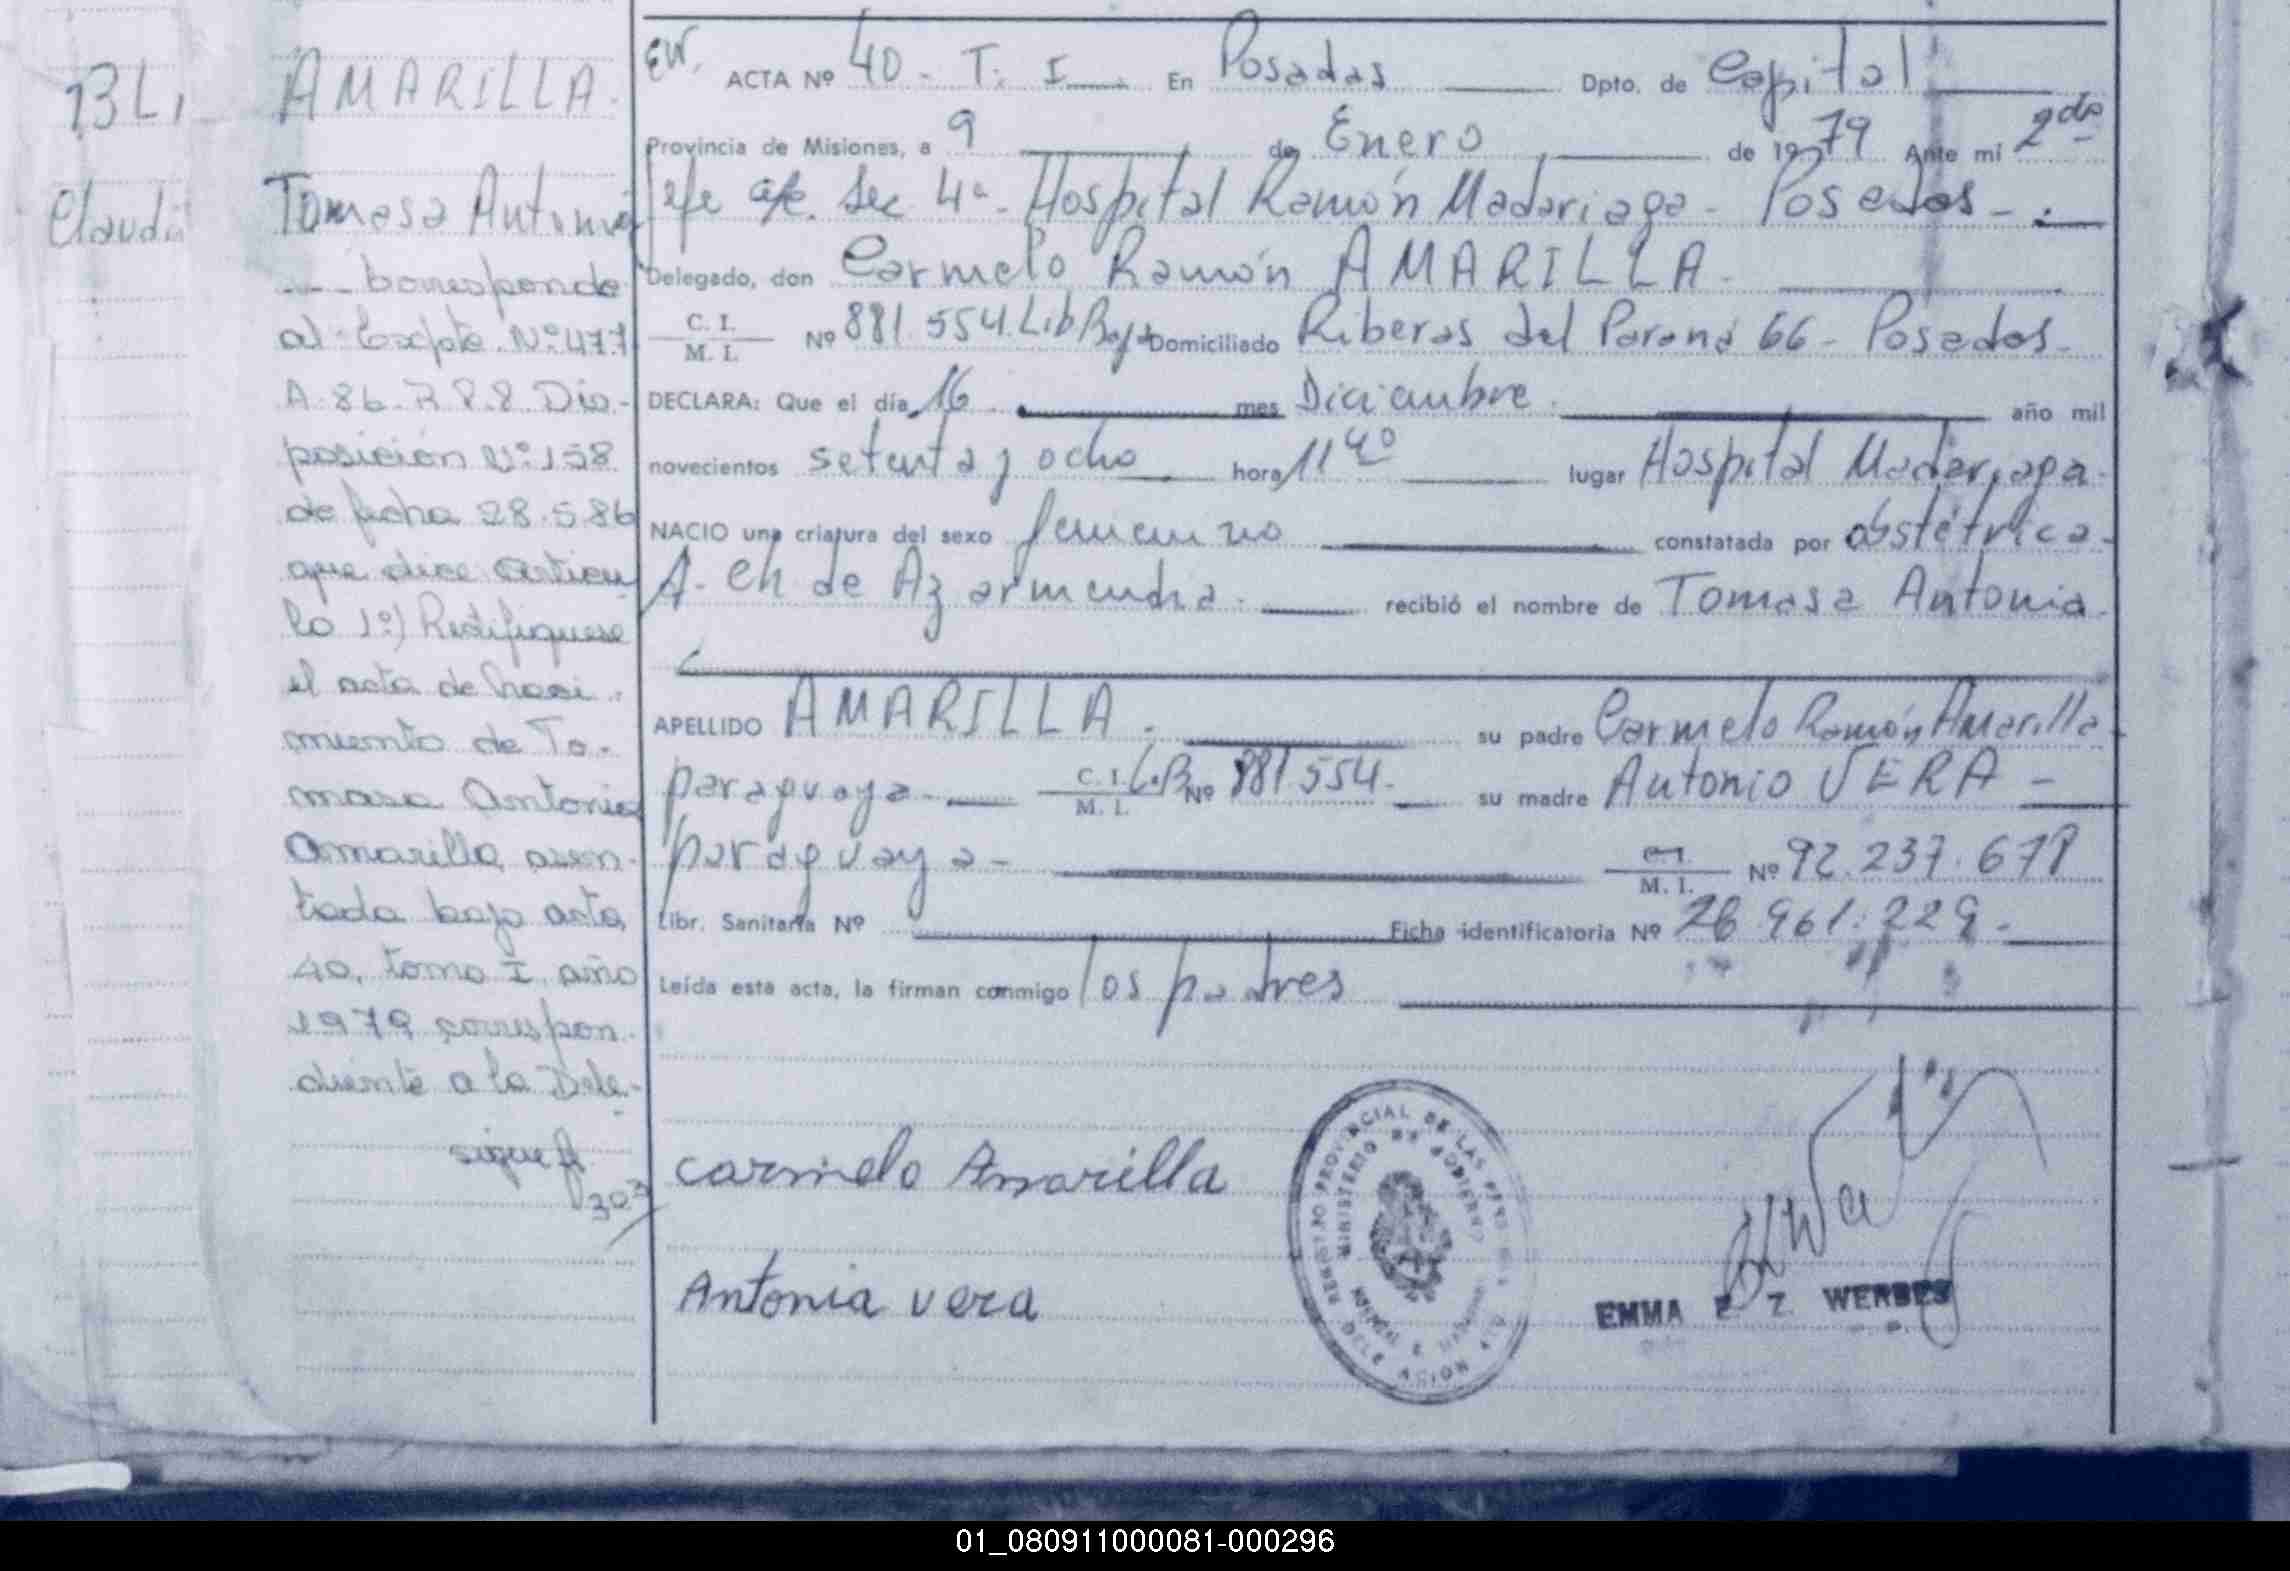 BL,
Claudi
AMARILLA.
Tomasa Antonia
--- Corresponde
al Expte. Nº 477
A. 86. R.P.P. Dis-
posición Nº 158
de fecha 28.5.86
que dice Articu
lo 1º) Rectifiquese
el acta de naci-
miento de To-
masa Antonia
Amarilla, asen-
tada bajo acta,
40, tomo I, año
1979, correspon-
diente a la Dele-
sigue fl
303
EW. ACTA Nº 40 - T. I En Posadas Dpto. de Capital
Provincia de Misiones, a 9 de Enero de 1979 Ante mi 2da
Jefe Sec 4a - Hospital Ramón Madariaga - Posadas -
Delegado, don Carmelo Ramón AMARILLA.
C. I. / M. I. Nº 881.554. Lib Baja Domiciliado Riberas del Paraná 66 - Posadas -
DECLARA: Que el día 16 mes Diciembre año mil
novecientos setenta y ocho hora 11 40 lugar Hospital Madariaga.
NACIO una criatura del sexo femenino constatada por obstétrica
A. Ch de Azarmendia. recibió el nombre de Tomasa Antonia
APELLIDO AMARILLA. su padre Carmelo Ramón Amarilla
paraguaya - C. I. / M. I. L.B Nº 881554. su madre Antonio VERA -
paraguaya - C. I. / M. I. Nº 92.237.678
Libr. Sanitaria Nº Ficha identificatoria Nº 26 961.229 -
Leída esta acta, la firman conmigo los padres
Carmelo Amarilla
Antonia vera
REGISTRO PROVINCIAL DE LAS PERSONAS
MINISTERIO DE GOBIERNO
HOSPITAL R. MADARIAGA
DELEGACION 4TO
EMMA E. Z. WERBES
01_080911000081-000296